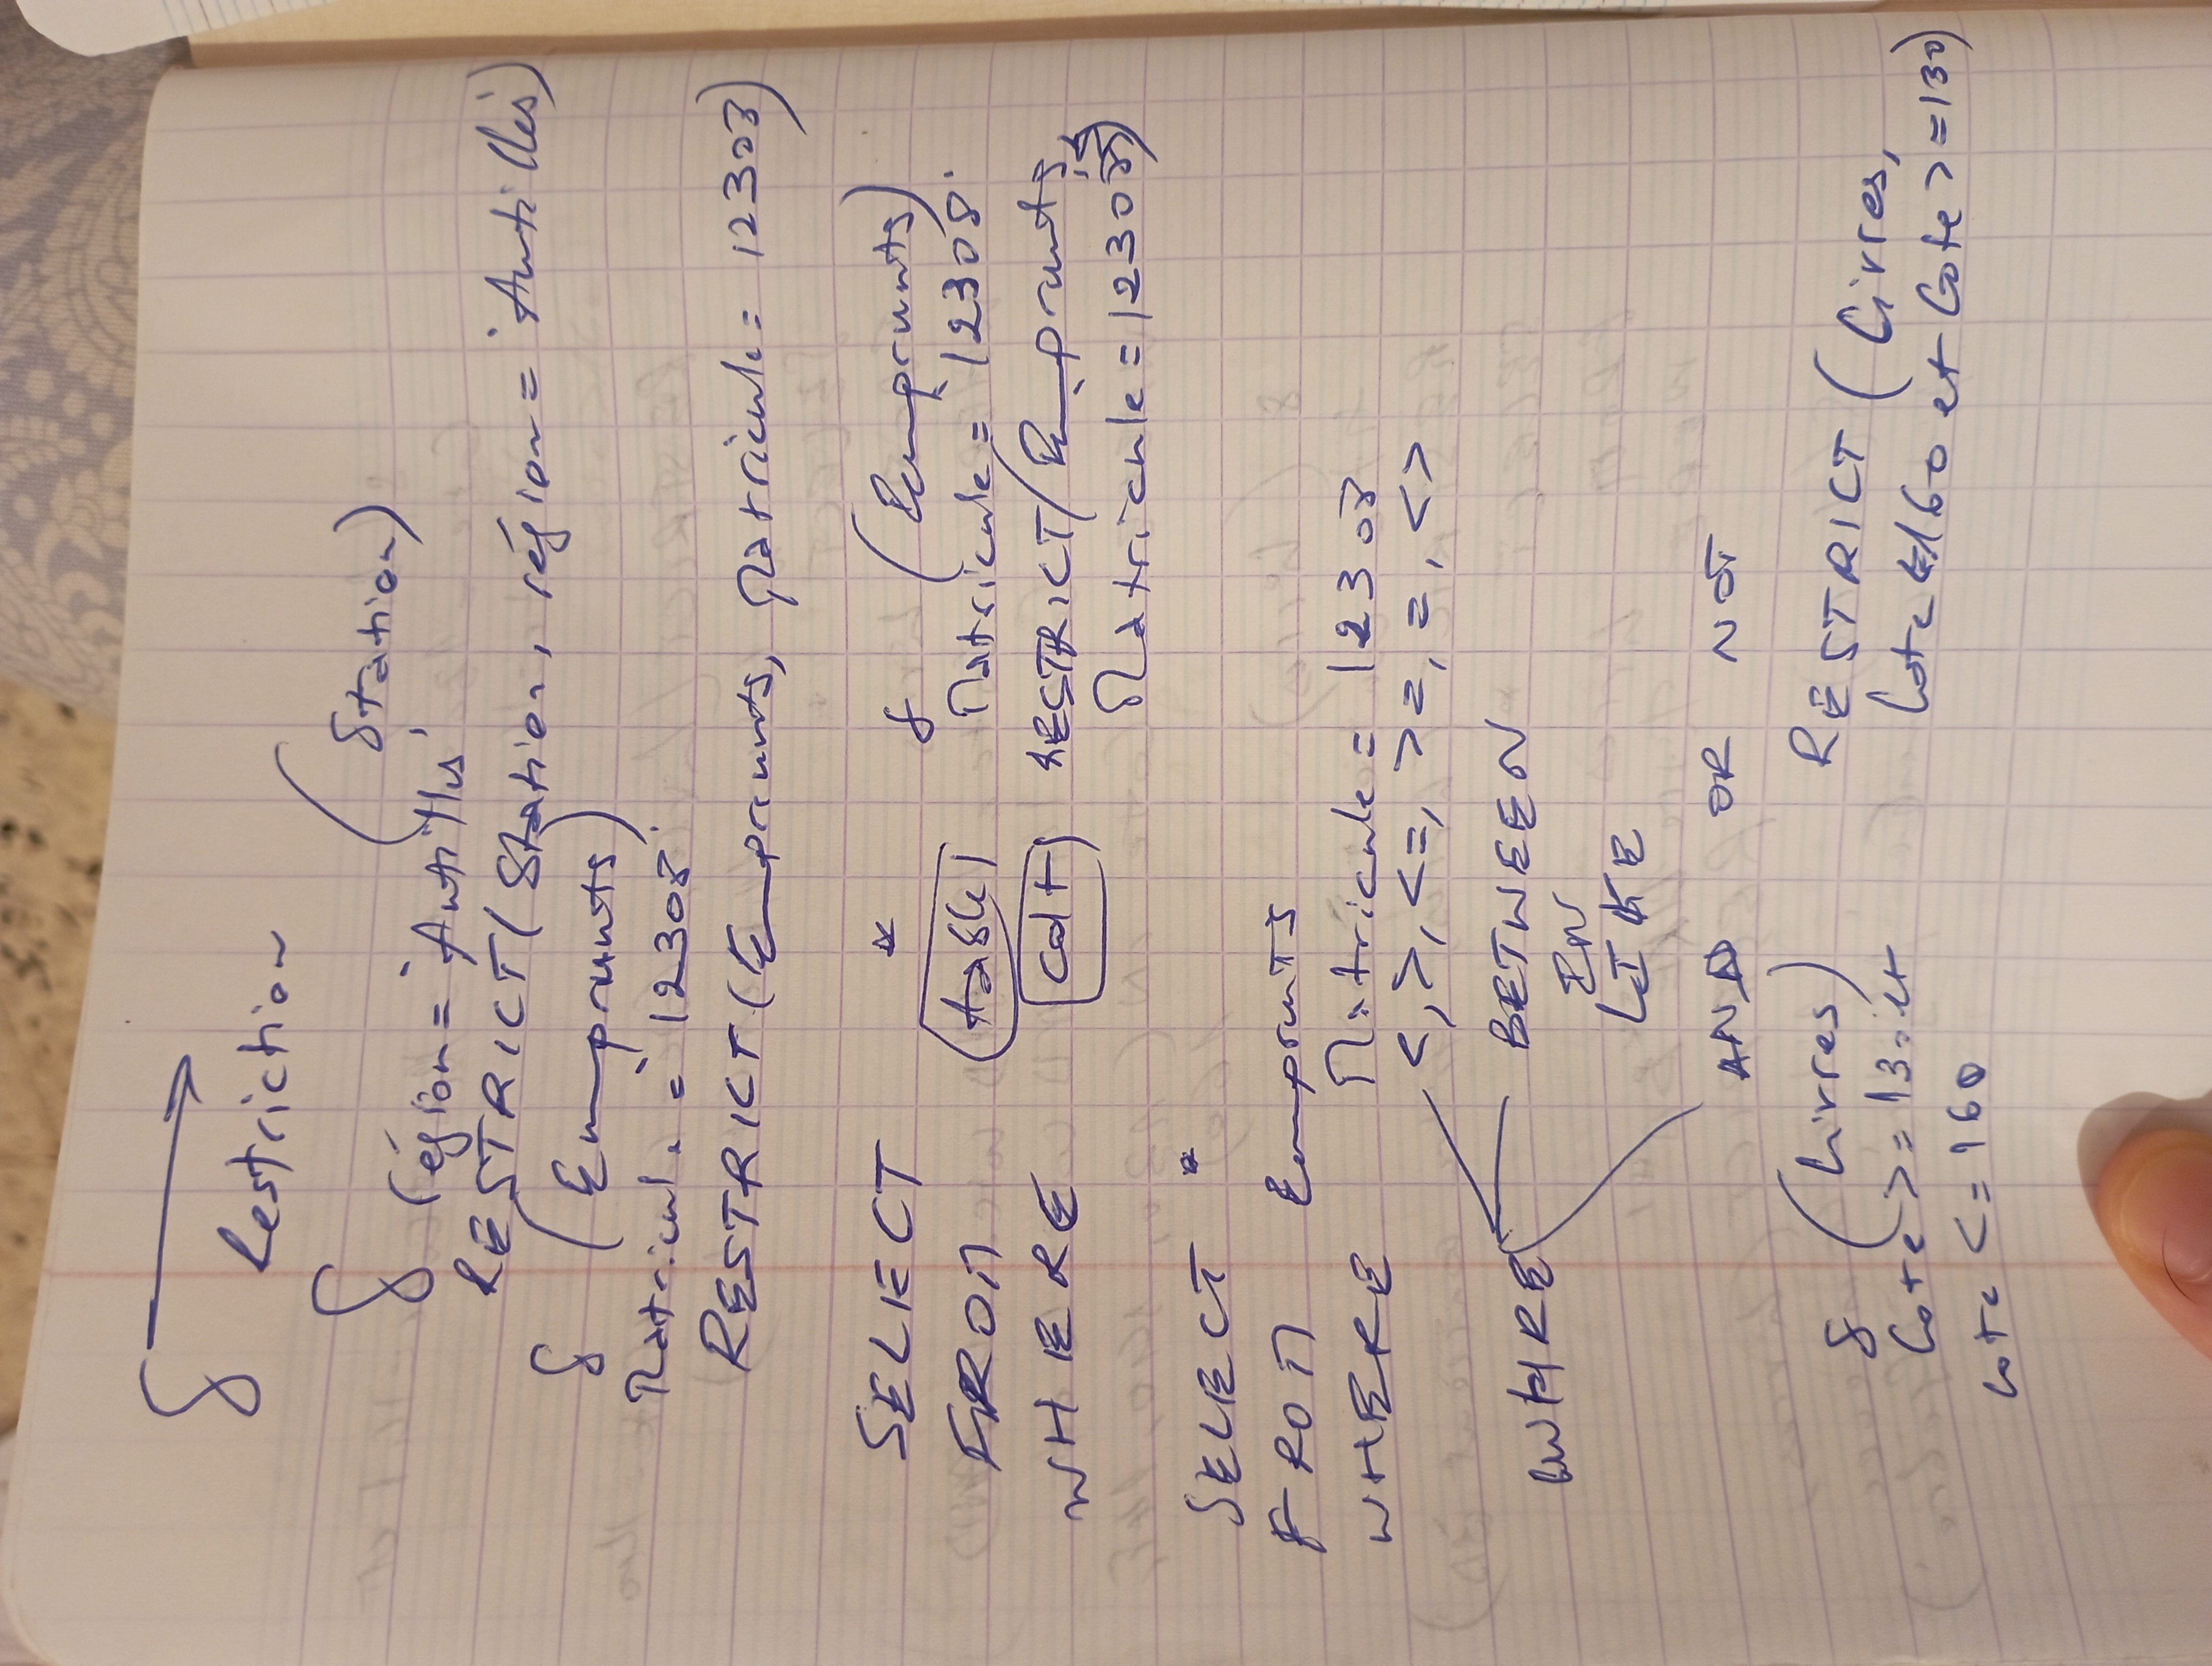 δ → Restriction
δ (Station)
région = 'Antilles'
RESTRICT (Station, région = 'Antilles')
δ (Emprunts)
Matricule = '12308'
RESTRICT (Emprunts, Matricule = 12308)
SELECT * δ (Emprunts)
FROM table1 Matricule = '12308'
WHERE col1 RESTRICT (Emprunts,
Matricule = 12308)
SELECT *
FROM Emprunts
WHERE Matricule = 12308
<, >, <=, >=, =, <>
WHERE BETWEEN
IN
LIKE
AND OR NOT
δ (Livres) RESTRICT (Livres,
Cote >= 130 et Cote <= 160 et Cote >= 130)
Cote <= 160